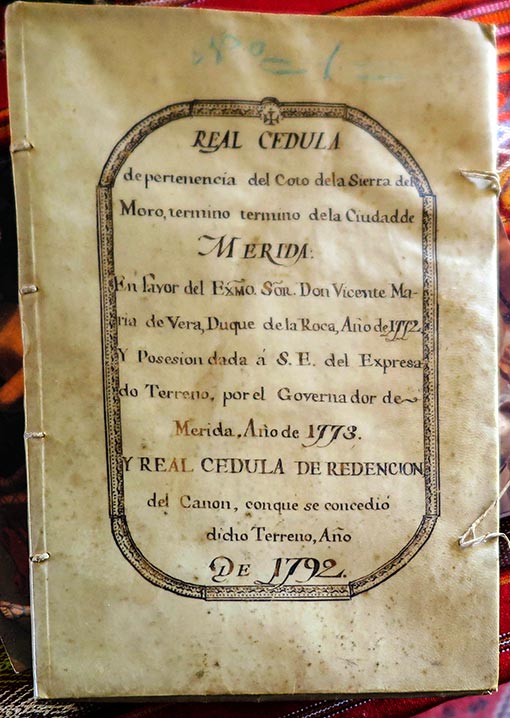 Nº 1
REAL CEDULA
de pertenencia del Coto dela Sierra del
Moro, termino termino dela Ciudad de
MERIDA.
En favor del EXMO. SOR. Don Vicente Ma-
ria de Vera, Duque de la Roca, Año de 1772.
Y Posesion dada á S. E. del Expresa-
do Terreno, por el Governador de
Merida, Año de 1773.
Y REAL CEDULA DE REDENCION
del Canon, conque se concedió
dicho Terreno, Año
DE 1792.